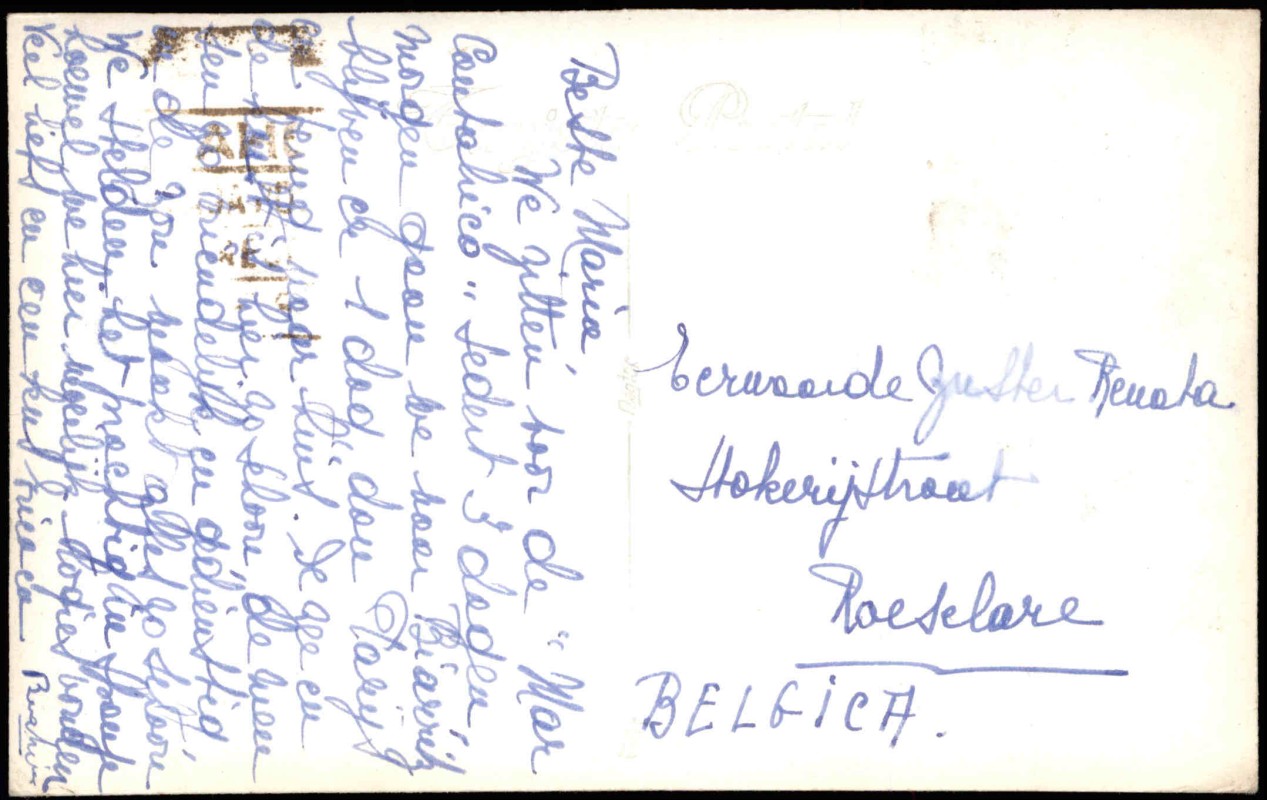 Beste Maria
We zitten voor de "Mar
Contabrico" sedert 3 dagen
Morgen gaan we naar Biarritz
blijven er 1 dag dan Parijs
en terug naar huis. De zee en
de kust is hier zo schoon de men
sen zo vriendelijk en gedienstig
en de zon maakt alles zo schoon
We stellen het prachtig in Spanje
hoewel we hier moeilijk
Veel liefs en een kus
Eerwaarde Zuster Renata
Stokerijstraat
Roeselare
BELGICA.